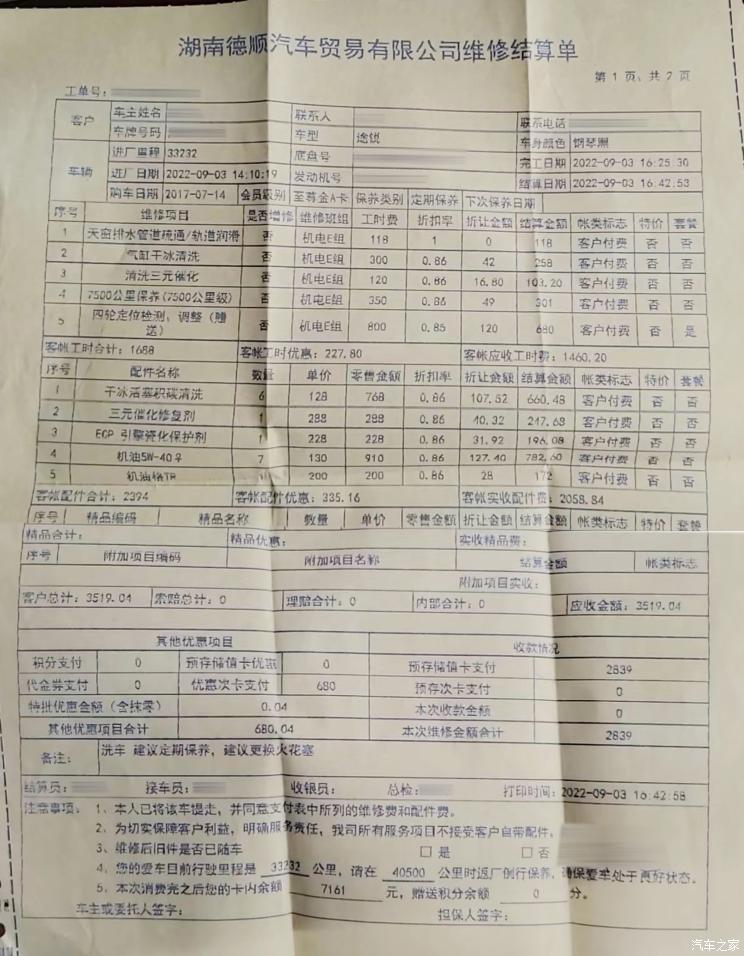 湖南德顺汽车贸易有限公司维修结算单
第 1 页, 共 2 页
工单号:
客户 车主姓名 联系人 联系电话
车牌号码 车型 途锐 车身颜色 钢琴黑
车辆 进厂里程 33232 底盘号 完工日期 2022-09-03 16:25:30
进厂日期 2022-09-03 14:10:19 发动机号 结算日期 2022-09-03 16:42:53
购车日期 2017-07-14 会员级别 至尊金A卡 保养类别 定期保养 下次保养日期
序号 维修项目 是否增修 维修班组 工时费 折扣率 折让金额 结算金额 帐类标志 特价 套餐
1 天窗排水管道疏通/轨道润滑 否 机电E组 118 1 0 118 客户付费 否 否
2 气缸干冰清洗 否 机电E组 300 0.86 42 258 客户付费 否 否
3 清洗三元催化 否 机电E组 120 0.86 16.80 103.20 客户付费 否 否
4 7500公里保养(7500公里级) 否 机电E组 350 0.86 49 301 客户付费 否 否
5 四轮定位检测、调整(赠送) 否 机电E组 800 0.85 120 680 客户付费 否 是
客帐工时合计: 1688 客帐工时优惠: 227.80 客帐应收工时费: 1460.20
序号 配件名称 数量 单价 零售金额 折扣率 折让金额 结算金额 帐类标志 特价 套餐
1 干冰活塞积碳清洗 6 128 768 0.86 107.52 660.48 客户付费 否 否
2 三元催化修复剂 1 288 288 0.86 40.32 247.68 客户付费 否 否
3 ECP 引擎瓷化保护剂 1 228 228 0.86 31.92 196.08 客户付费 否 否
4 机油5W-40 7 130 910 0.86 127.40 782.60 客户付费 否 否
5 机油格TR 1 200 200 0.86 28 172 客户付费 否 否
客帐配件合计: 2394 客帐配件优惠: 335.16 客帐实收配件费: 2058.84
序号 精品编码 精品名称 数量 单价 零售金额 折让金额 结算金额 帐类标志 特价 套餐
精品合计: 精品优惠: 实收精品费:
序号 附加项目编码 附加项目名称 结算金额 帐类标志
附加项目实收:
客户总计: 3519.04 索赔总计: 0 理赔合计: 0 内部合计: 0 应收金额: 3519.04
其他优惠项目 收款情况
积分支付 0 预存储值卡优惠 0 预存储值卡支付 2839
代金券支付 0 优惠次卡支付 680 预存次卡支付 0
特批优惠金额 (含抹零) 0.04 本次收款金额 0
其他优惠项目合计 680.04 本次维修金额合计 2839
备注: 洗车 建议定期保养, 建议更换火花塞
结算员: 接车员: 收银员: 总检: 打印时间: 2022-09-03 16:42:58
注意事项: 1、本人已将该车提走, 并同意支付表中所列的维修费和配件费。
2、为切实保障客户利益, 明确服务责任, 我司所有服务项目不接受客户自带配件。
3、维修后旧件是否已随车 □ 是 □ 否
4、您的爱车目前行驶里程是 33232 公里, 请在 40500 公里时返厂例行保养, 确保爱车处于良好状态。
5、本次消费完之后您的卡内余额 7161 元, 赠送积分余额 0 分。
车主或委托人签字: 担保人签字:
汽车之家